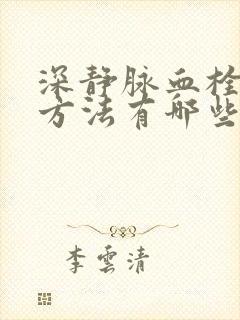 深静脉血栓
方法有哪些
李雲清